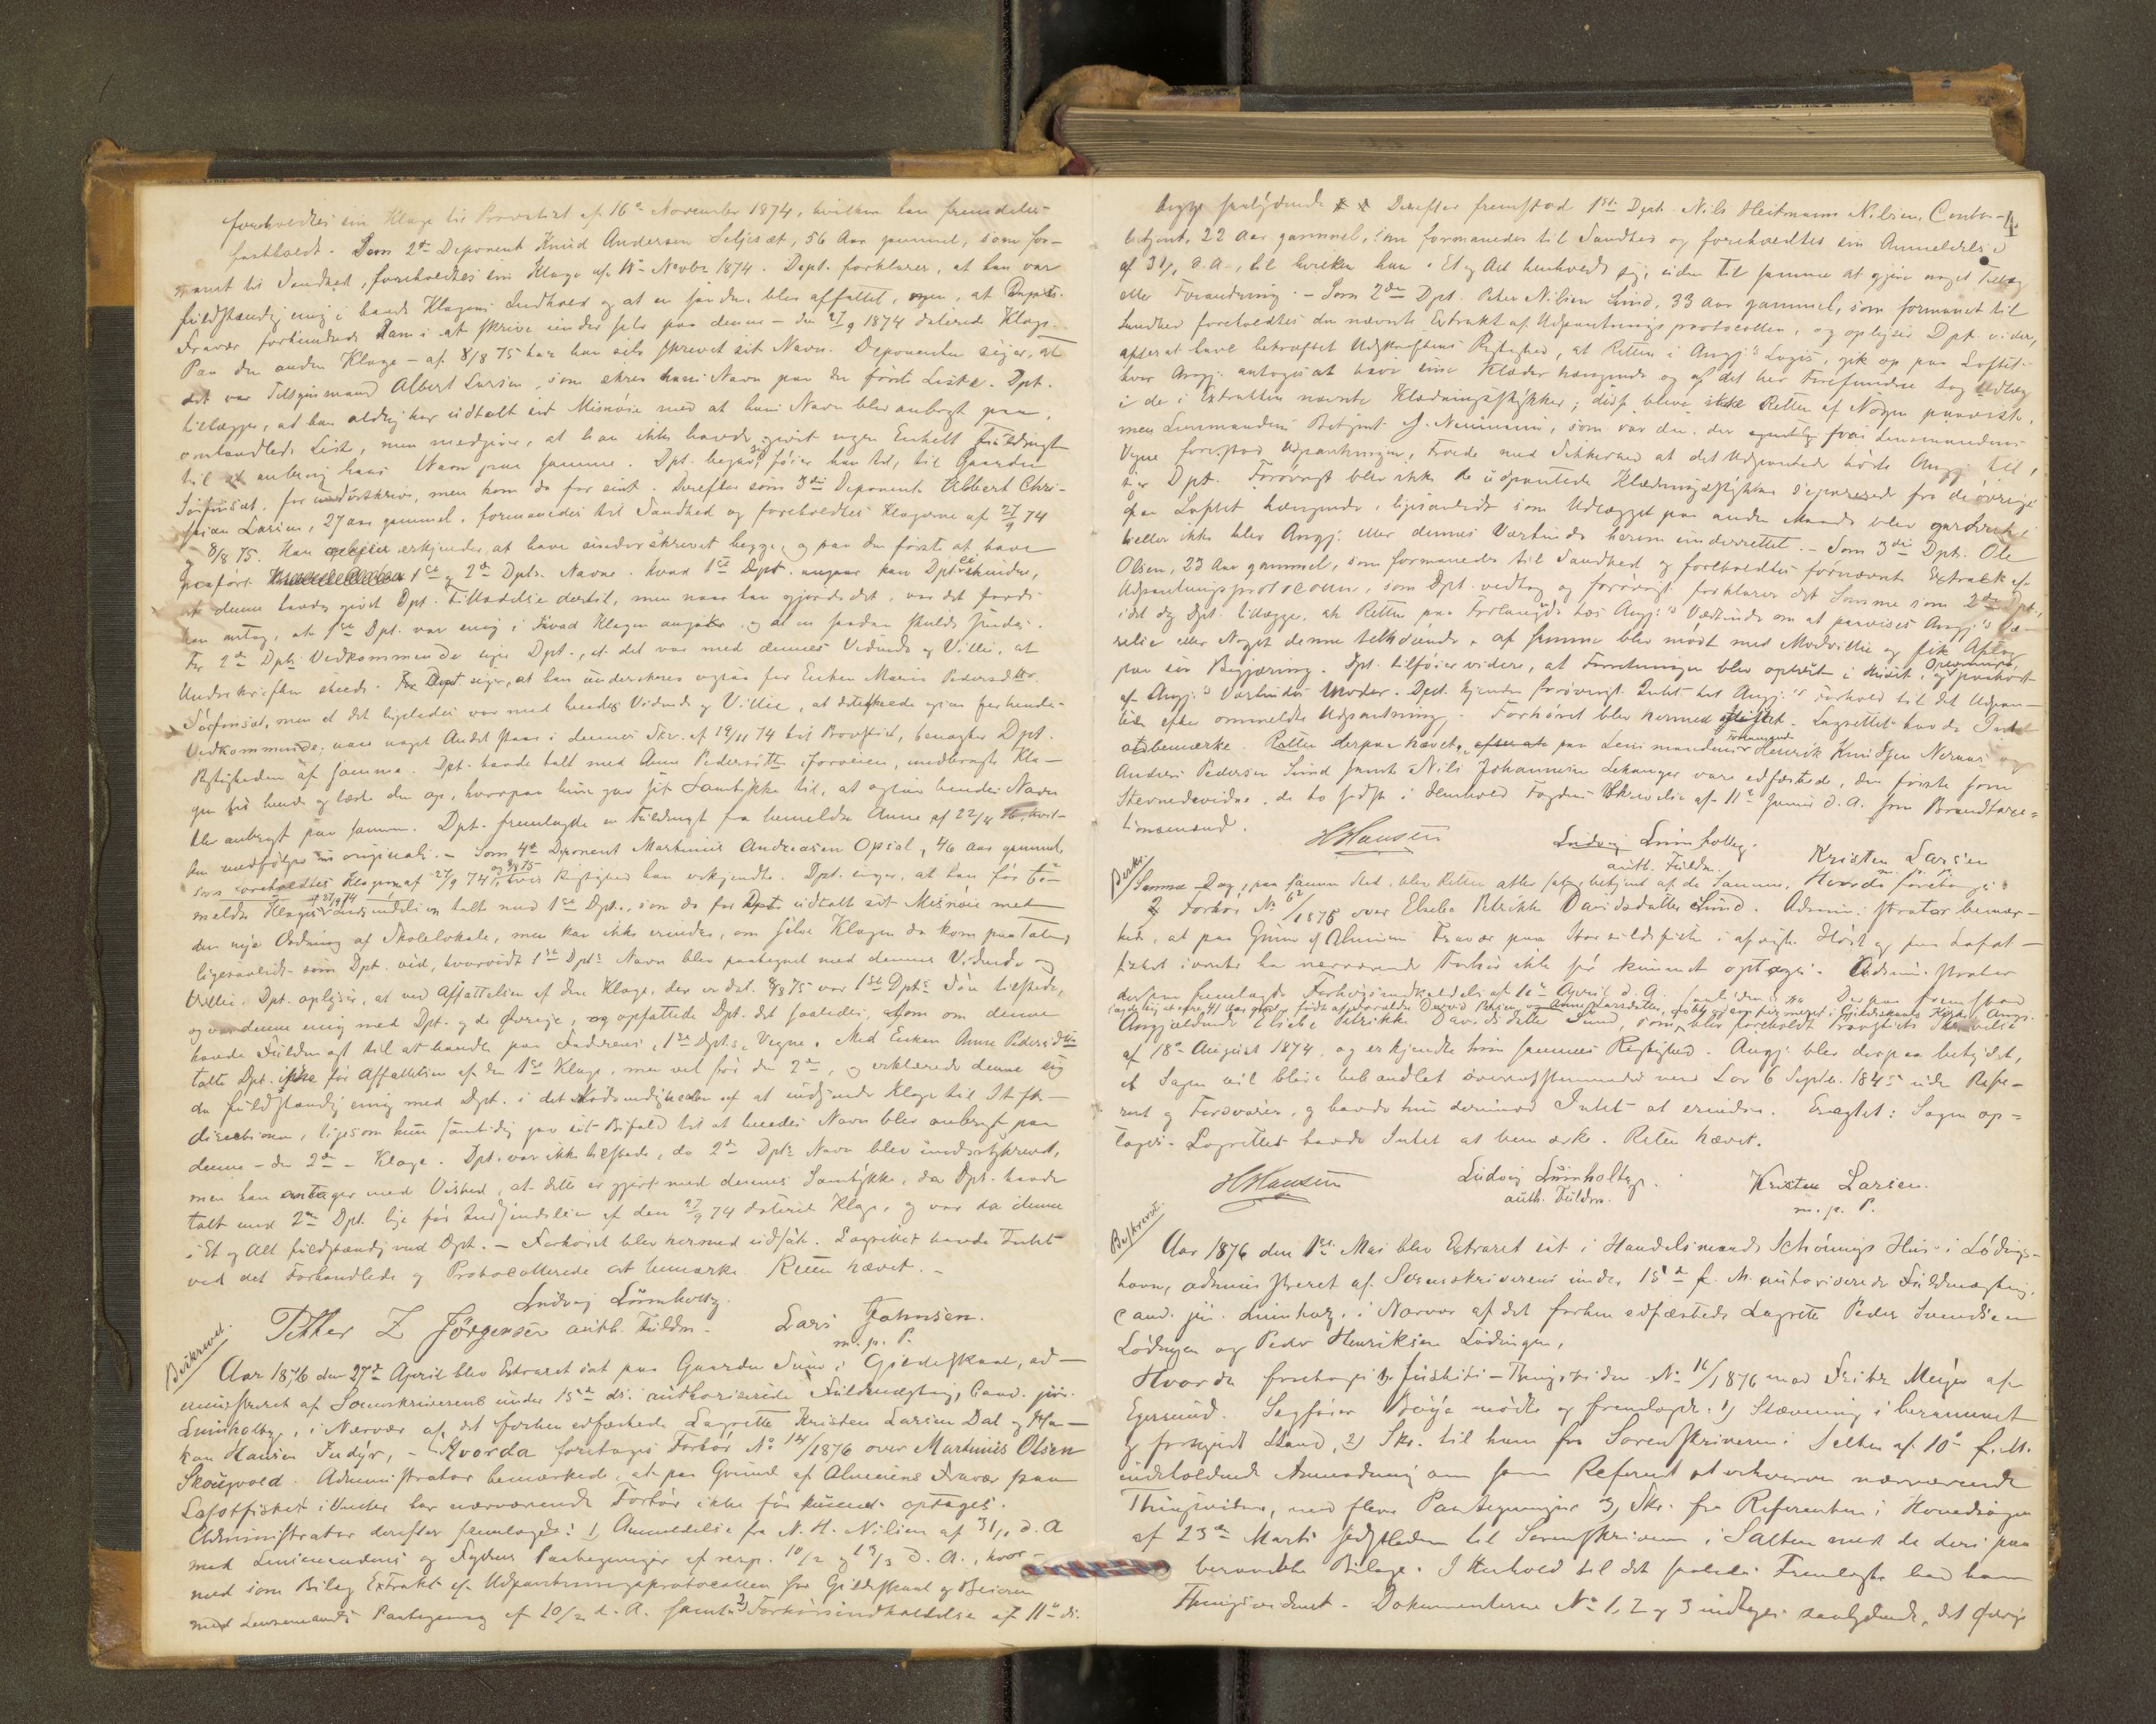 foreholdtes en Klage til Provstiet af 16de November 1874, hvilken han fremdeles
fastholdt. Som 2den Deponent Knud Andersen Seljesæt, 56 Aar gammel, som for-
manet til Sandhed, foreholdtes en Klage af Novbr 1874. Dept. forklarer, at han var
fuldstændig enig i Klagens Indhold og at en saadan blev affattet, men, at Depts.
Fravær forhindrede ham i at skrive under selv paa denne – den 27/9 1874 daterede Klage.
Paa den anden Klage – af 8/8 75 har han selv skrevet sit Navn. Deponenten siger, at
det var Tilsynsmand Albert Larsen, som skrev hans Navn paa den første Liste. Dpt.
tillægger, at han aldrig har udtalt sit Misnøie med at hans Navn blev anbragt paa
omhandlede Liste, men medgiver, at han ikke havde givet nogen Enkelt Fuldmagt
til at anbringe hans Navn paa samme. Dpt. begav sig, føier han til, til Gaarden
for at underskrive, men kom da for sent. Derefter som 3die Deponent Albert Chri-
stian Larsen, 27 aar gammel, formanedes til Sandhed og foreholdtes Klagerne af 27/9 74
og 8/8 75. Han erkjender at have underskrevet begge, og paa den første at have
paaført 1ste og 2den Dpts. Navne. Hvad 1ste Dpt. angaar kan Dpt. ei erindre,
at denne havde givet Dpt. Tilladelse dertil, men naar han gjorde det, var det fordi
han antog, at 1ste Dpt. var enig i hvad Klagen angaar og at en saadan skulde sendes.
For 2den Dpts Vedkommende siger Dpt., at det var med dennes Vidende og Villie, at
Underskriften skede. Dept siger, at han underskrev ogsaa for Enken Maren Pedersdtr.
Sörfinset, men at det ligeledes var med hendes Vidende og Villie, at det skede ogsaa for hendes
Vedkommende; naar noget Andet staar i dennes Skr. af 19/11 74 til Provstiet, benægter Dpt.
Rigtigheden af samme. Dpt. havde talt med Anne Pedersdtr iforveien, medbragte Kla-
gen til hende og læste den op, hvorpaa hun gav sit Samtykke til, at ogsaa hendes Navn
blev anbragt paa samme. Dpt. fremlagde en Fuldmagt fra bemeldte Anne af 22/4 76, hvil-
ken medfølger in originali. – Som 4de Deponent Martinius Andreasen Opsal, 46 aar gammel,
som foreholdtes Klagerne af 27/9 74 og 8/8 75, hvis Rigtighed han erkjendte. Dpt. siger, at han før be-
meldte Klages af 27/9 74 Indsendelse talte med 1ste Dpt., som da for Dpt. udtalt sit Misnøie med
den nye Ordning af Skolelokale, men kan ikke erindre, om selve Klagen da kom paa Tale,
ligesaalidt som Dpt. ved, hvorvidt 1ste Dpts Navn blev paategnet med dennes Vidende og
Villie. Dpt. oplyser, at ved Affattelsen af den Klage, der er dat. 8/8 75 var 1ste Dpts Søn tilstede,
og var denne enig med Dpt. og de Øvrige, og opfattede Dpt. det saaledes, som om denne
havde Fuldmagt til at handle paa Faderens, 1ste Dpts. Vegne. Med Enken Anne Pedersdtr
talte Dpt. ikke før Affattelsen af den 1ste Klage, men vel før den 2den, og erklærede denne sig
da fuldstændig enig med Dpt. i det Nødvendige af at indsende Klage til Stifts-
directionen, ligesom hun samtidig gav sit Bifald til at hendes Navn blev anbragt paa
denne – den 2den – Klage. Dpt. var ikke tilstede, da 2den Dpts Navn blev underskrevet,
men han antager med Vished, at dette er gjort med dennes Samtykke, da Dpt. havde
talt med 2den Dpt. lige før Indsendelsen af den 27/9 74 daterede Klage, og var da denne
i Et og Alt fuldstændig med Dpt. – Forhøret blev hermed udsat. Lagrettet havde Intet
ved det Forhandlede og Protocollerede at bemærke. Retten hævet. –
Ludvig Lumholtz.
Petter Z Jörgensen auth. Fuldm. Lars Johnsen.
m. p. P.
Beskrevet.
Aar 1876 den 27de April blev Extraret sat paa Gaarden Sund i Gildeskaal, ad-
ministreret af Sorenskriverens under 15de ds. authoriserede Fuldmægtig, Cand. jur.
Lumholtz, i Nærvær af det forhen edfæstede Lagrette Kristen Larsen Dal og Ha-
kon Hansen Indyr, – Hvorda foretoges Forhör No 14/1876 over Martinus Olsen
Skougvold. Administrator bemærkede, at paa Grund af Almuens Fravær paa
Lofotfisket i Vinter har nærværende Forhör ikke før kunnet optages.
Administrator derefter fremlagde: 1, Anmeldelse fra N. H. Nilsen af 31/1 d. A
med Lensmandens og Fogdens Paategninger af resp. 10/2 og 19/3 d. A., hvor-
med som Bilag Extrakt af Udpantningsprotocollen for Gildeskaal og Beieren
med Lensmandens Paategning af 20/2 d. A. samt 2, Forhørsindkaldelse af 11te ds.
4
begge saalydende Derefter fremstod 1ste Dpt. Nils Heitmann Nilsen, Contor-
betjent, 22 Aar gammel, som formanedes til Sandhed og foreholdtes sin Anmeldelse
af 31/1 d. A., til hvilken han i Et og Alt henholdt sig, uden til samme at gjøre noget Tillæg
eller Forandring. – Som 2den Dpt. Peter Nilsen Sund, 33 Aar gammel, som formanet til
Sandhed foreholdtes den nævnte Extrakt af Udpantningsprotocollen, og oplyser Dpt. videre,
efterat have bekræftet Udskriftens Rigtighed, at Retten i Angj's Logis, gik op paa Loftet
hvor Angj. antoges at have sine Klæder hængende og af det her Forefundne tog Udlæg
i de i Extrakten nævnte Klædningsstykker; disse bleve ikke Retten af Nogen paaviste,
men Lensmandens Betjent J. Neumann, som var den, der egentlig fra Lensmandens
Vegne forestod Udpantningen, troede med Sikkerhed at det Udpantede hørte Angj. til,
siger Dpt. Forøvrigt blev ikke de udpantede Klædningsstykker separerede fra de øvrige
paa Loftet hængende, ligesaalidt som Udlægget paa anden Maade blev garderet;
heller ikke blev Angj. eller dennes Værtinde herom underrettet. – Som 3die Dpt. Ole
Olsen, 23 Aar gammel, som formanedes til Sandhed og foreholdtes førnævnte Extrakt af
Udpantningsprotocollen, som Dpt. vedtog og forøvrigt forklarer det Samme som 2den Dpt.,
idet dog Dpt. tillægger, at Retten paa Forlangende hos Angj's Værtinde om at paavises Angj's Væ-
relse eller Noget denne tilhørende, af samme blev mødt med Modvillie og fik Afslag
paa sin Begjæring. Dpt. tilføier videre, at Forretningen blev oplæst i Huset, og paahørt
af Angj's Værtindes Moder. Dpt. kjender forøvrigt Intet til Angj's Forhold til det Udpan-
tede efter ommeldte Udpantning. Forhøret blev hermed sluttet. Lagrettet havde Intet
at bemærke. Retten derpaa hævet, efterat paa Lensmandens Forlangende Henrik Knudsen Nernæs og
Anders Pedersen Sund samt Nils Johannesen Lekanger vare edfæstede, den første som
Stevnevidne, de to sidste i Henhold Fogdens Skrivelse af 11te Januar d. A. som Brandtaxa-
tionsmænd.
HHansen Ludvig Lumholtz. Kristen Larsen
auth. Fuldm. m. p. P.
Beskr.
Samme Dag, paa samme Sted, blev Retten atter sat og betjent af de Samme, Hvorda foretoges:
Forhör No 62/1875 over Elseba Petrikke Davidsdatter Sund. Administrator bemær-
kede, at paa Grund af Almuens Fravær paa Storsildfiske i afvigte Høst og paa Lofot-
fisket ivinter har nærværende Forhör ikke før kunnet optages. Administrator
dernæst fremlagde Forhørsindkaldelse af 11te April d. A. Derpaa fremstod
Angjældende Elseba Petrikke Davidsdatter Sund, som blev foreholdt Provstiets Skrivelse
af 18de August 1874, og erkjendte hun sammes Rigtighed. Angj. blev derpaa betydet,
at Sagen vil blive behandlet overensstemmende med Lov 6 Septbr. 1845 uden Refe-
rent og Forsvarer, og havde hun derimod Intet at erindre. Eragtet: Sagen op-
tages. Lagrettet havde Intet at bemærke. Retten hævet.
HHansen Ludvig Lumholtz. Kristen Larsen.
auth. Fuldm. m. p. P.
Beskrevet.
Aar 1876 den 1ste Mai blev Extraret sat i Handelsmand Schönings Hus i Lödings-
havn, administreret af Sorenskriverens under 15de f. M. autoriserede Fuldmægtig,
Cand. jur. Lumholtz, i Nærvær af det forhen edfæstede Lagrette Peder Svendsen
Lödingen og Peder Henriksen Lödingen,
Hvorda foretoges Justits-Thingsvidne No 16/1876 mod Fritz Meyer af
Egersund. Sagfører Böye mödte og fremlagde: 1) Stævning i beramment
og forkyndt Stand, 2) Skr. til ham fra Sorenskriveren i Salten af 10de f. M.
indeholdende Anmodning om som Referent at erhverve nærværende
Thingsvidne, med flere Paategninger 3, Skr. fra Referenten i Hovedsagen
af 23de Marts sidstleden til Sorenskriveren i Salten med de deri paa
beraabte Bilage. I Henhold til det saaledes Fremlagte bad han
Thingsvidnet. Dokumenterne No 1, 2 og 3 indtages saalydende, det Øvrige